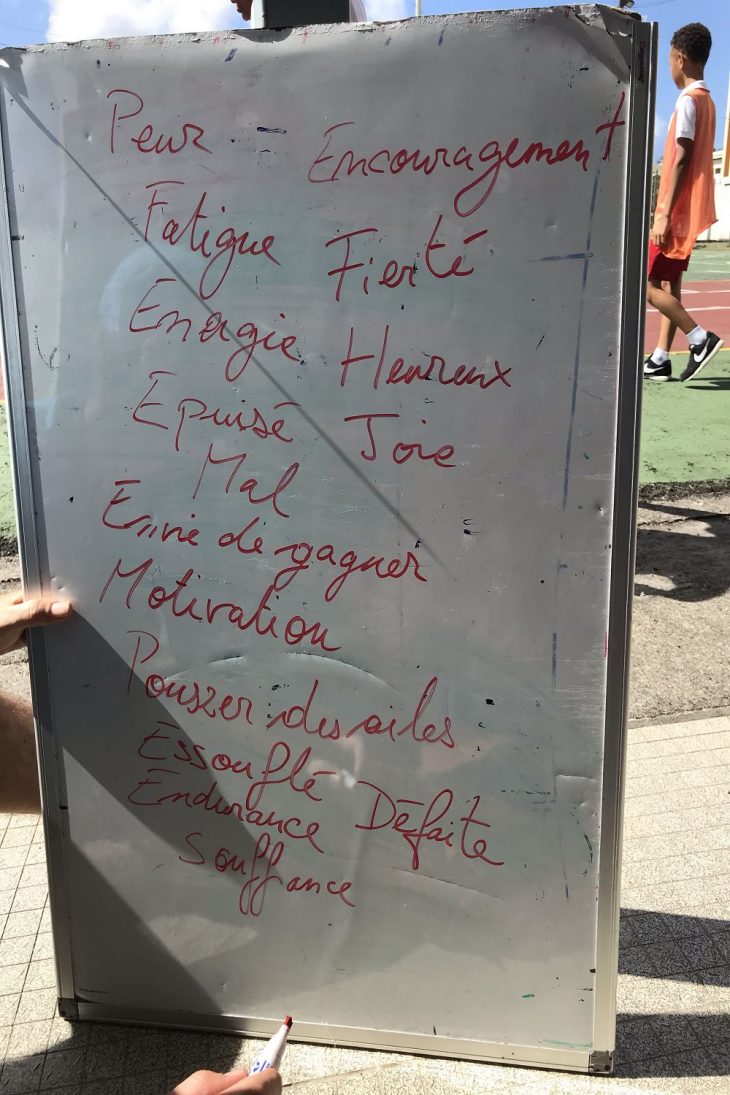 Peur - Encouragement
Fatigue Fierté
Energie Heureux
Epuisé Joie
Mal
Envie de gagner
Motivation
Pousser des ailes
Essouflé
Endurance Défaite
Souffrance